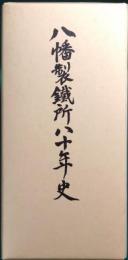 八幡製鐵所八十年史